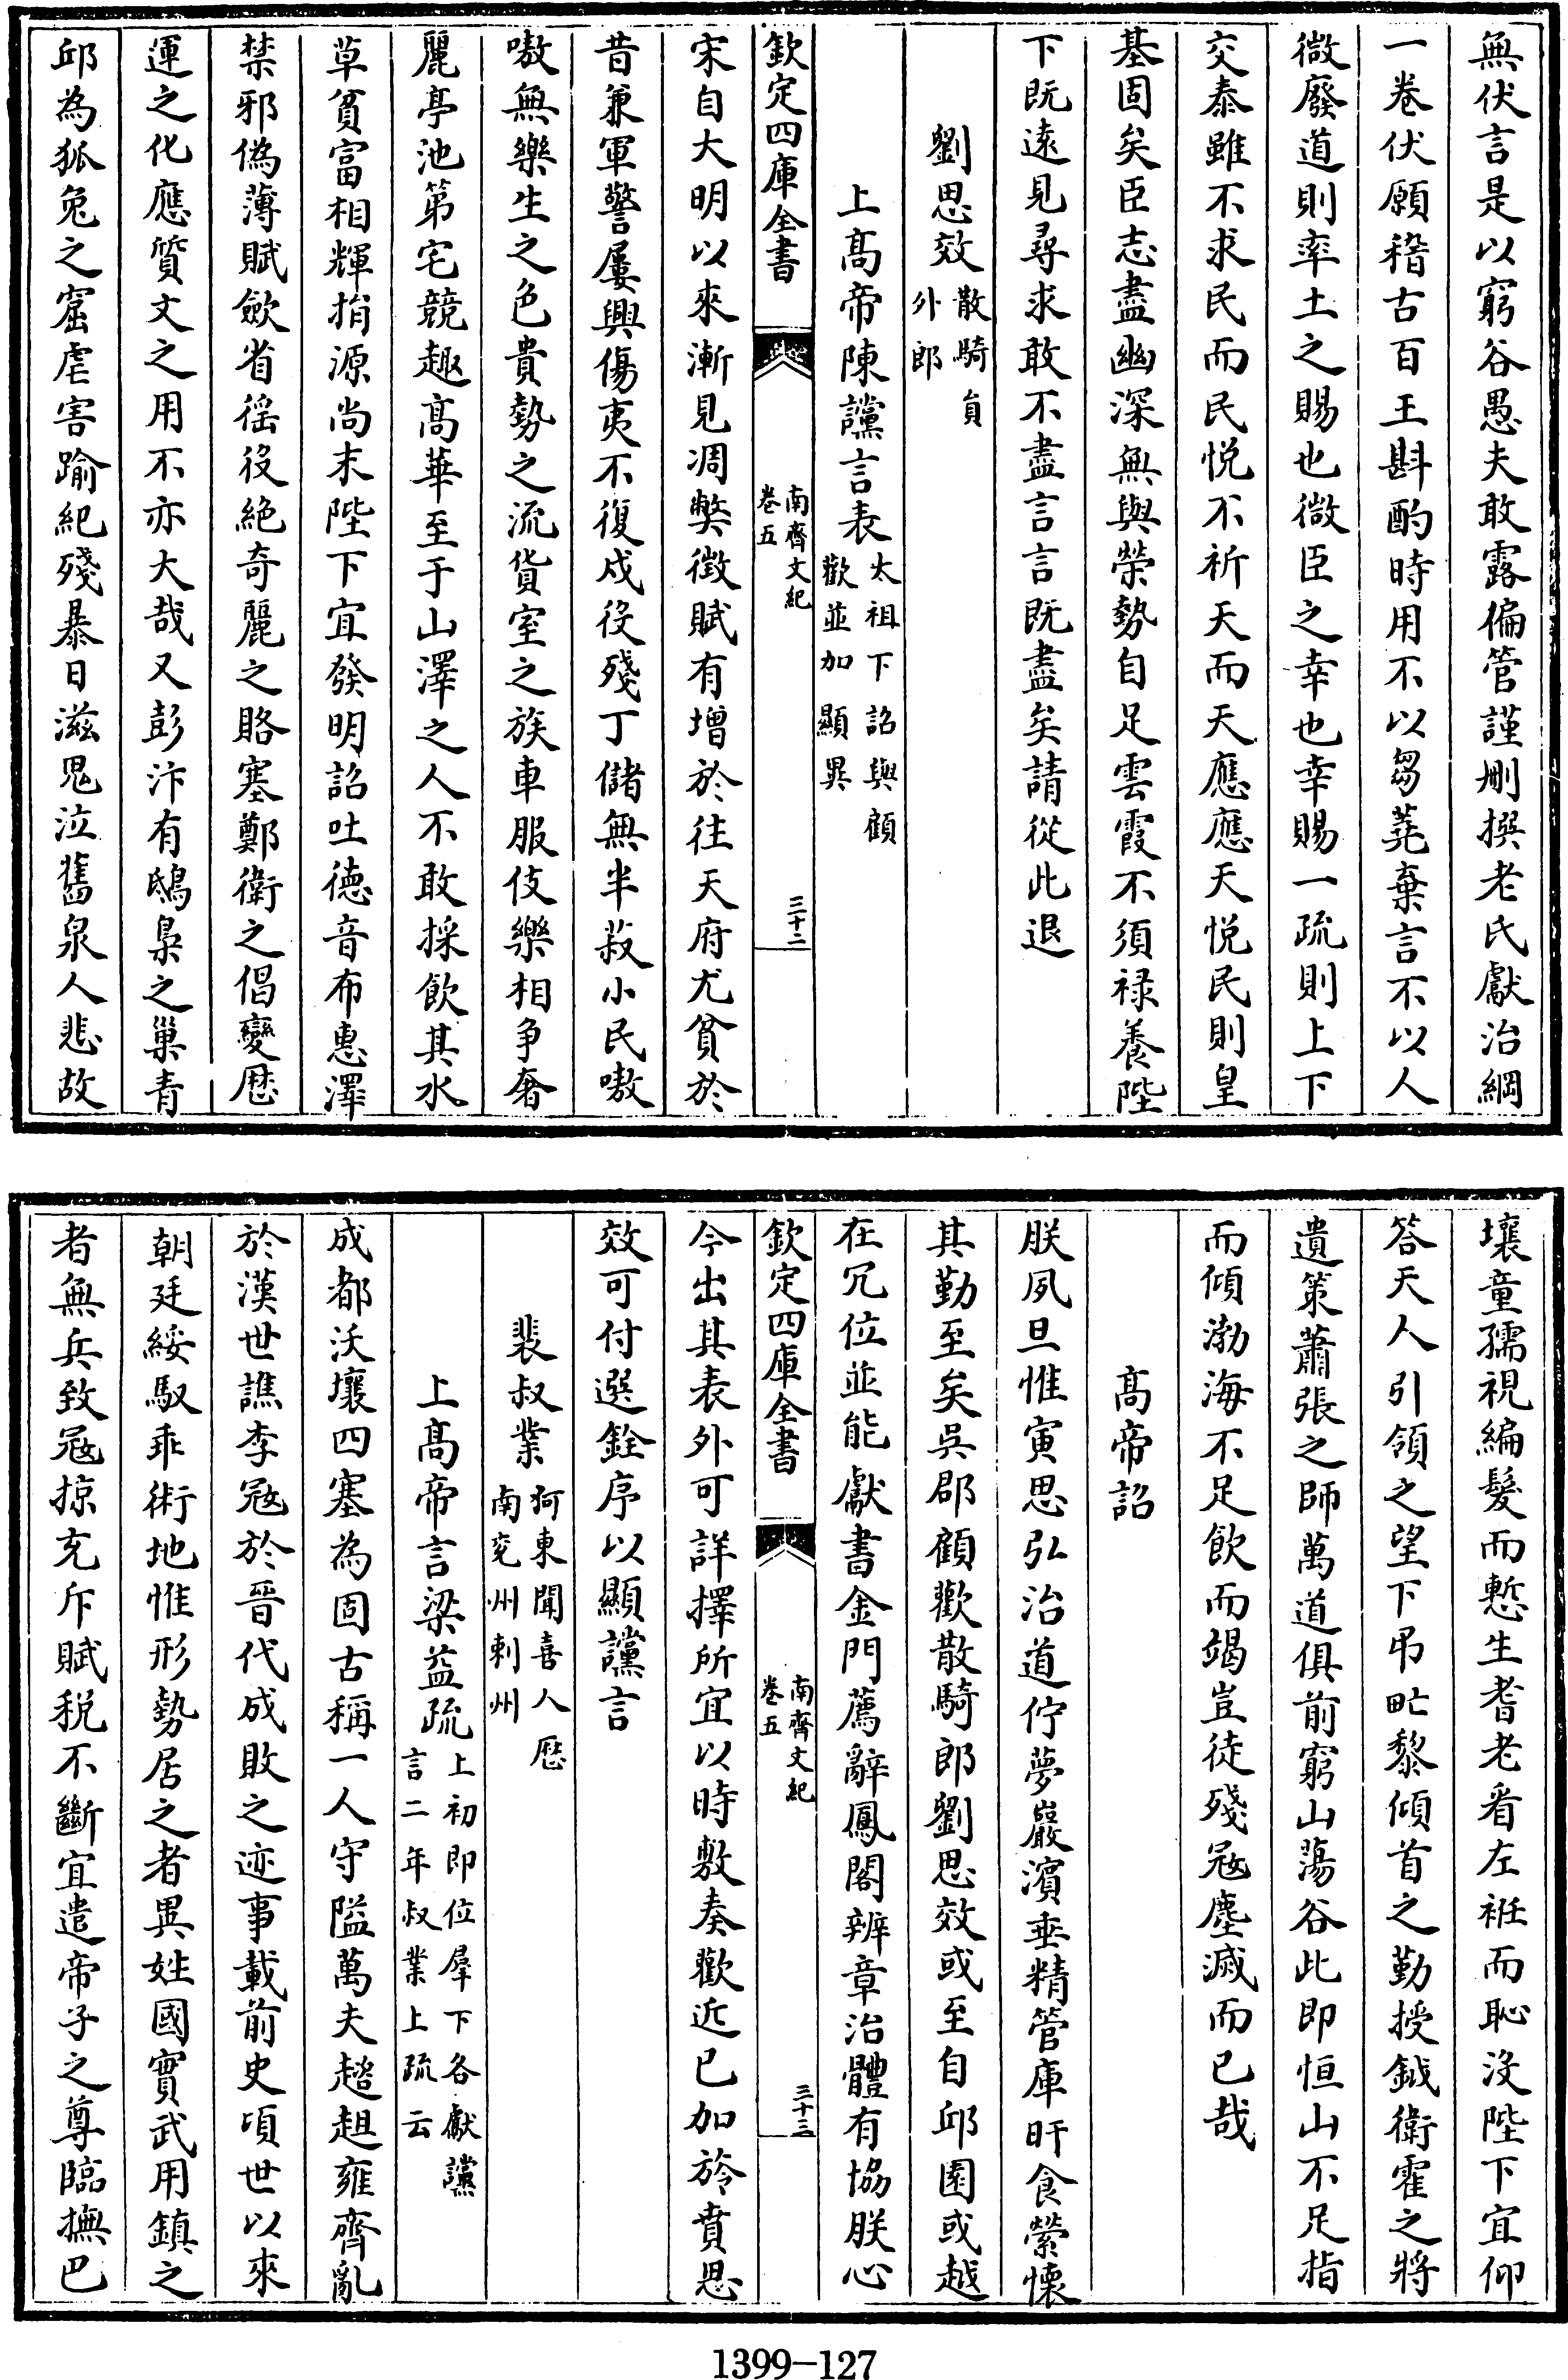 無伏言是以窮谷愚夫敢露偏管謹刪撰老氏獻治綱
一卷伏願稽古百王斟酌時用不以芻蕘棄言不以人
微廢道則率土之賜也微臣之幸也幸賜一疏則上下
交泰雖不求民而民悅不祈天而天應應天悅民則皇
基固矣臣志盡幽深無與榮勢自足雲霞不須祿養陛
下既遠見尋求敢不盡言言既盡矣請從此退
劉思效散騎員
外郎
上髙帝陳讜言表太祖下詔與顧
歡並加顯異
欽定四庫全書
南齊文紀
卷五
三十二
宋自大明以來漸見凋獘徴賦有增於往天府尤貧於
昔兼軍警屢興傷夷不復戍役殘丁儲無半菽小民嗷
嗷無樂生之色貴勢之流貨室之族車服伎樂相爭奢
麗亭池第宅競趣髙華至于山澤之人不敢採飲其水
草貧富相輝捐源尚末陛下宜發明詔吐徳音布惠澤
禁邪偽薄賦斂省徭役絶奇麗之賂塞鄭衛之倡變厯
運之化應質文之用不亦大哉又彭汴有鴟梟之巢青
邱為狐兔之窟虐害踰紀殘暴日滋鬼泣舊泉人悲故
壤童孺視編髮而慙生耆老看左袵而恥沒陛下宜仰
答天人引領之望下弔甿黎傾首之勤授鉞衛霍之將
遺策蕭張之師萬道俱前窮山蕩谷此即恒山不足指
而傾渤海不足飲而竭豈徒殘冦塵滅而已哉
髙帝詔
朕夙旦惟寅思弘治道佇夢巖濱垂精管庫旰食縈懷
其勤至矣吳郡顧歡散騎郎劉思效或至自邱園或越
在冗位並能獻書金門薦辭鳳閣辨章治體有協朕心
欽定四庫全書
南齊文紀
卷五
三十三
今出其表外可詳擇所宜以時敷奏歡近已加旍賁思
效可付選銓序以顯讜言
裴叔業河東聞喜人厯
南兖州刺州
上髙帝言梁益疏上初即位羣下各獻讜
言二年叔業上疏云
成都沃壤四塞為固古稱一人守隘萬夫趦趄雍齊亂
於漢世譙李冦於晉代成敗之迹事載前史頃世以來
朝廷綏馭乖術地惟形勢居之者異姓國實武用鎮之
者無兵致冦掠充斥賦稅不斷宜遣帝子之尊臨撫巴
1399-127